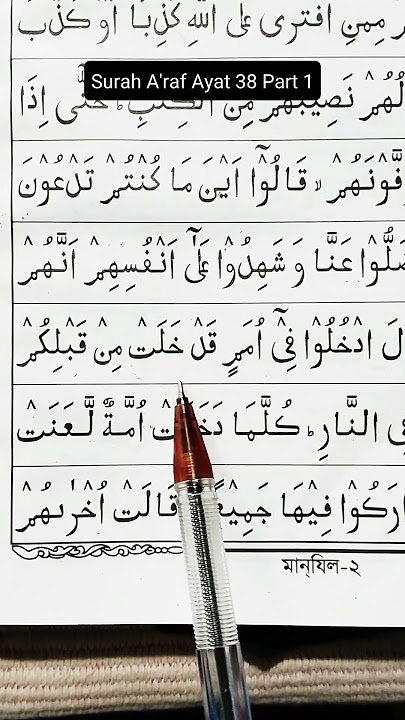 مِمَّنِ افْتَرٰى عَلَى اللّٰهِ كَذِبًا اَوْ كَذَّبَ
Surah A'raf Ayat 38 Part 1
نَصِيْبُهُمْ مِّنَ الْكِتٰبِ ؕ حَتّٰۤى اِذَا
قَالُوْۤا اَيْنَ مَا كُنْتُمْ تَدْعُوْنَ
عَنَّا وَ شَهِدُوْا عَلٰۤى اَنْفُسِهِمْ اَنَّهُمْ
ادْخُلُوْا فِيْۤ اُمَمٍ قَدْ خَلَتْ مِنْ قَبْلِكُمْ
النَّارِ ؕ كُلَّمَا دَخَلَتْ اُمَّةٌ لَّعَنَتْ
فِيْهَا جَمِيْعًا قَالَتْ اُخْرٰىهُمْ
মান্‌যিল-২